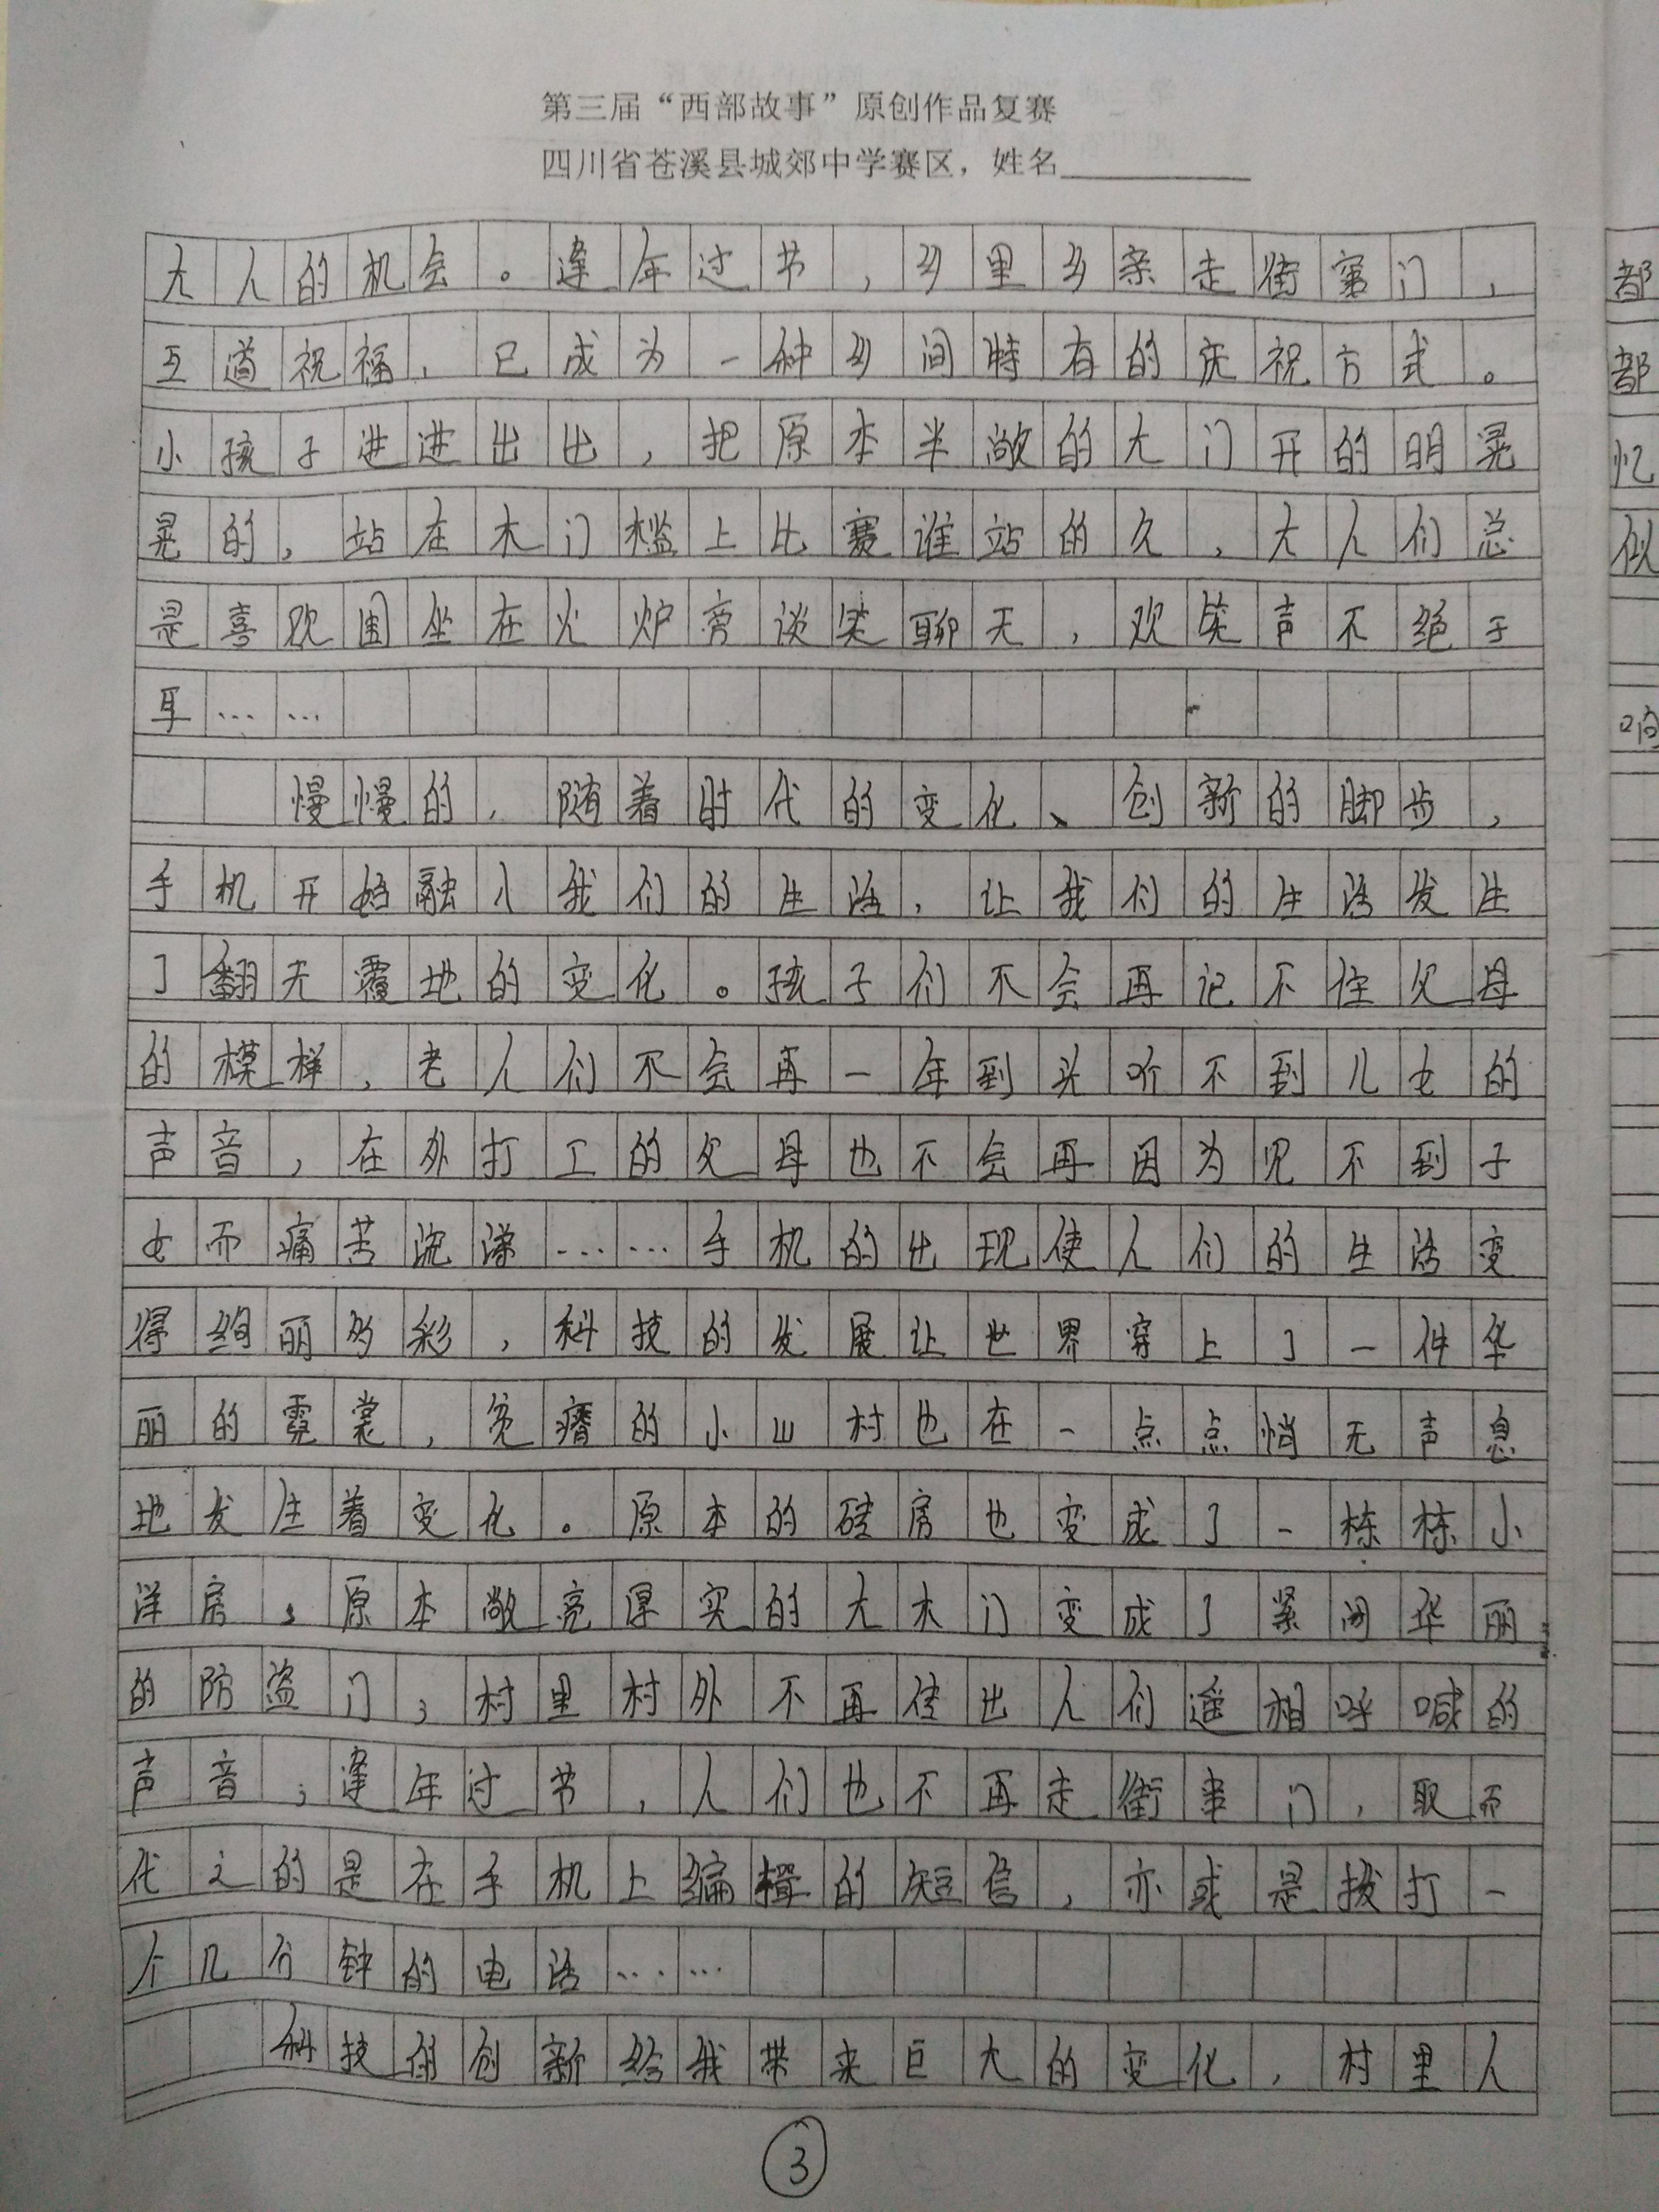 第三届“西部故事”原创作品复赛
四川省苍溪县城郊中学赛区，姓名
大人的机会。逢年过节，乡里乡亲走街窜门，
互道祝福，已成为一种乡间特有的庆祝方式。
小孩子进进出出，把原本半敞的大门开的明晃
晃的，站在木门槛上比赛谁站的久，大人们总
是喜欢围坐在火炉旁谈笑聊天，欢笑声不绝于
耳……
慢慢的，随着时代的变化、创新的脚步，
手机开始融入我们的生活，让我们的生活发生
了翻天覆地的变化。孩子们不会再记不住父母
的模样，老人们不会再一年到头听不到儿女的
声音，在外打工的父母也不会再因为见不到子
女而痛苦流涕……手机的出现使人们的生活变
得绚丽多彩，科技的发展让世界穿上了一件华
丽的霓裳，贫瘠的小山村也在一点点悄无声息
地发生着变化。原本的砖房也变成了一栋栋小
洋房，原本敞亮厚实的大木门变成了紧闭华丽
的防盗门，村里村外不再传出人们遥相呼喊的
声音；逢年过节，人们也不再走街串门，取而
代之的是在手机上编辑的短信，亦或是拨打一
个几分钟的电话……
科技的创新给我带来巨大的变化，村里人
③
都
都
忆
似
响